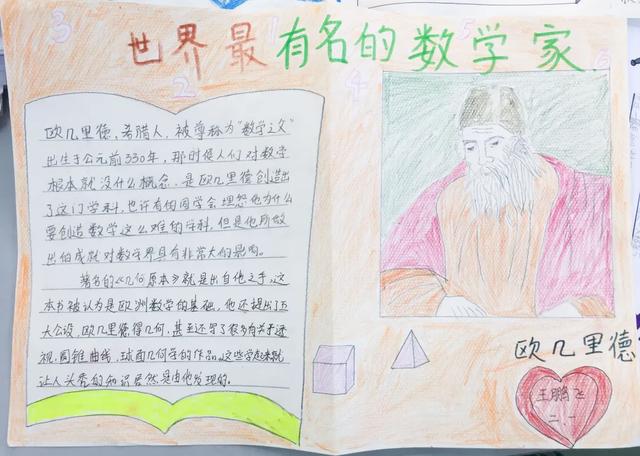 世界最有名的数学家
3
1
5
6
2
4
欧几里德，希腊人，被尊称为"数学之父"
出生于公元前330年，那时候人们对数学
根本就没什么概念，是欧几里德创造出
了这门学科，也许有的同学会埋怨他为什么
要创造数学这么难的学科，但是他所做
出的成就对数学界具有非常大的影响。
著名的《几何原本》就是出自他之手，这
本书被认为是欧洲数学的基础，他还提出了五
大公设，欧几里德得几何，甚至还写了很多有关于透
视，圆锥曲线，球面几何学的作品，这些学起来就
让人头秃的知识居然是由他发现的。
欧几里德
王鹏
二.